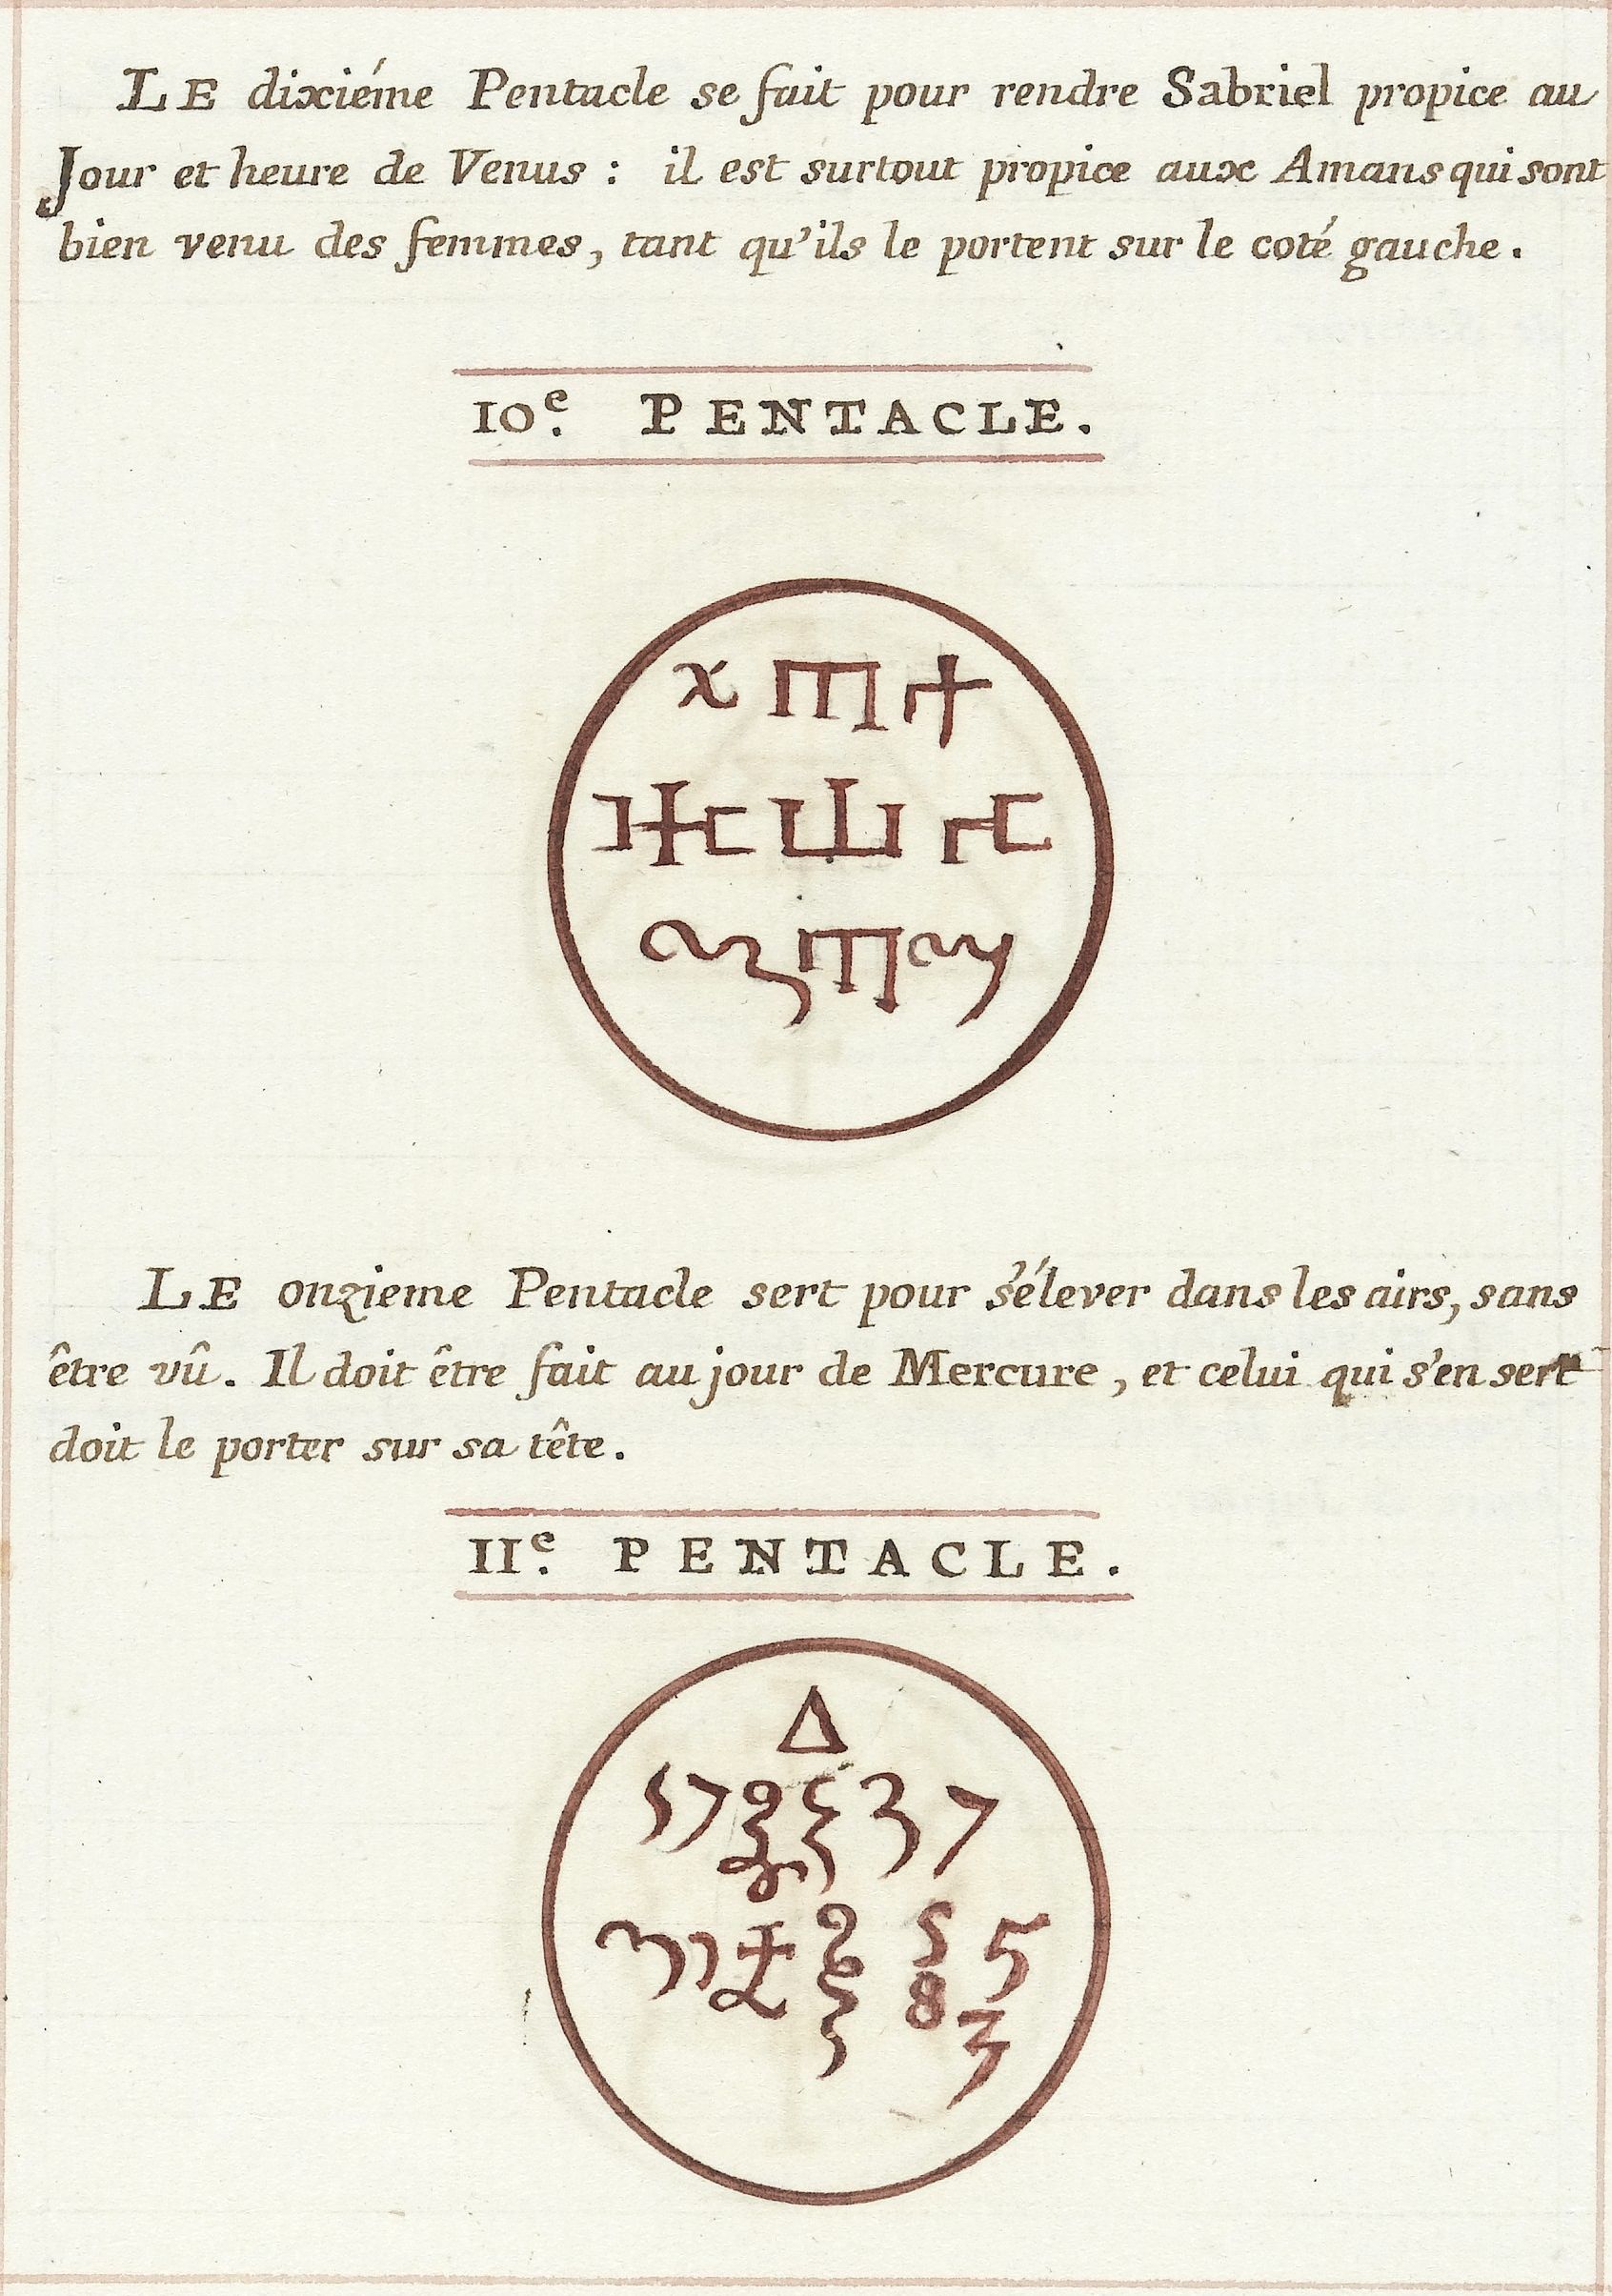 LE dixiéme Pentacle se fait pour rendre Sabriel propice au
Jour et heure de Venus : il est surtout propice aux Amans qui sont
bien venu des femmes, tant qu'ils le portent sur le coté gauche.
10e. PENTACLE.
LE onzieme Pentacle sert pour s'élever dans les airs, sans
être vû. Il doit être fait au jour de Mercure, et celui qui s'en sert
doit le porter sur sa tête.
11e. PENTACLE.
Δ